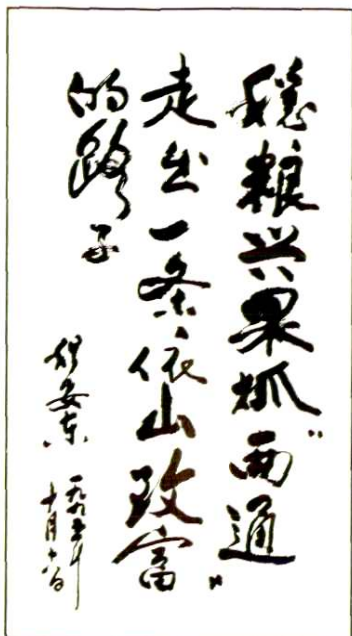 稳粮兴果抓“两通
走出一条依山致富”
的路子
程安东
一九九五年
十月